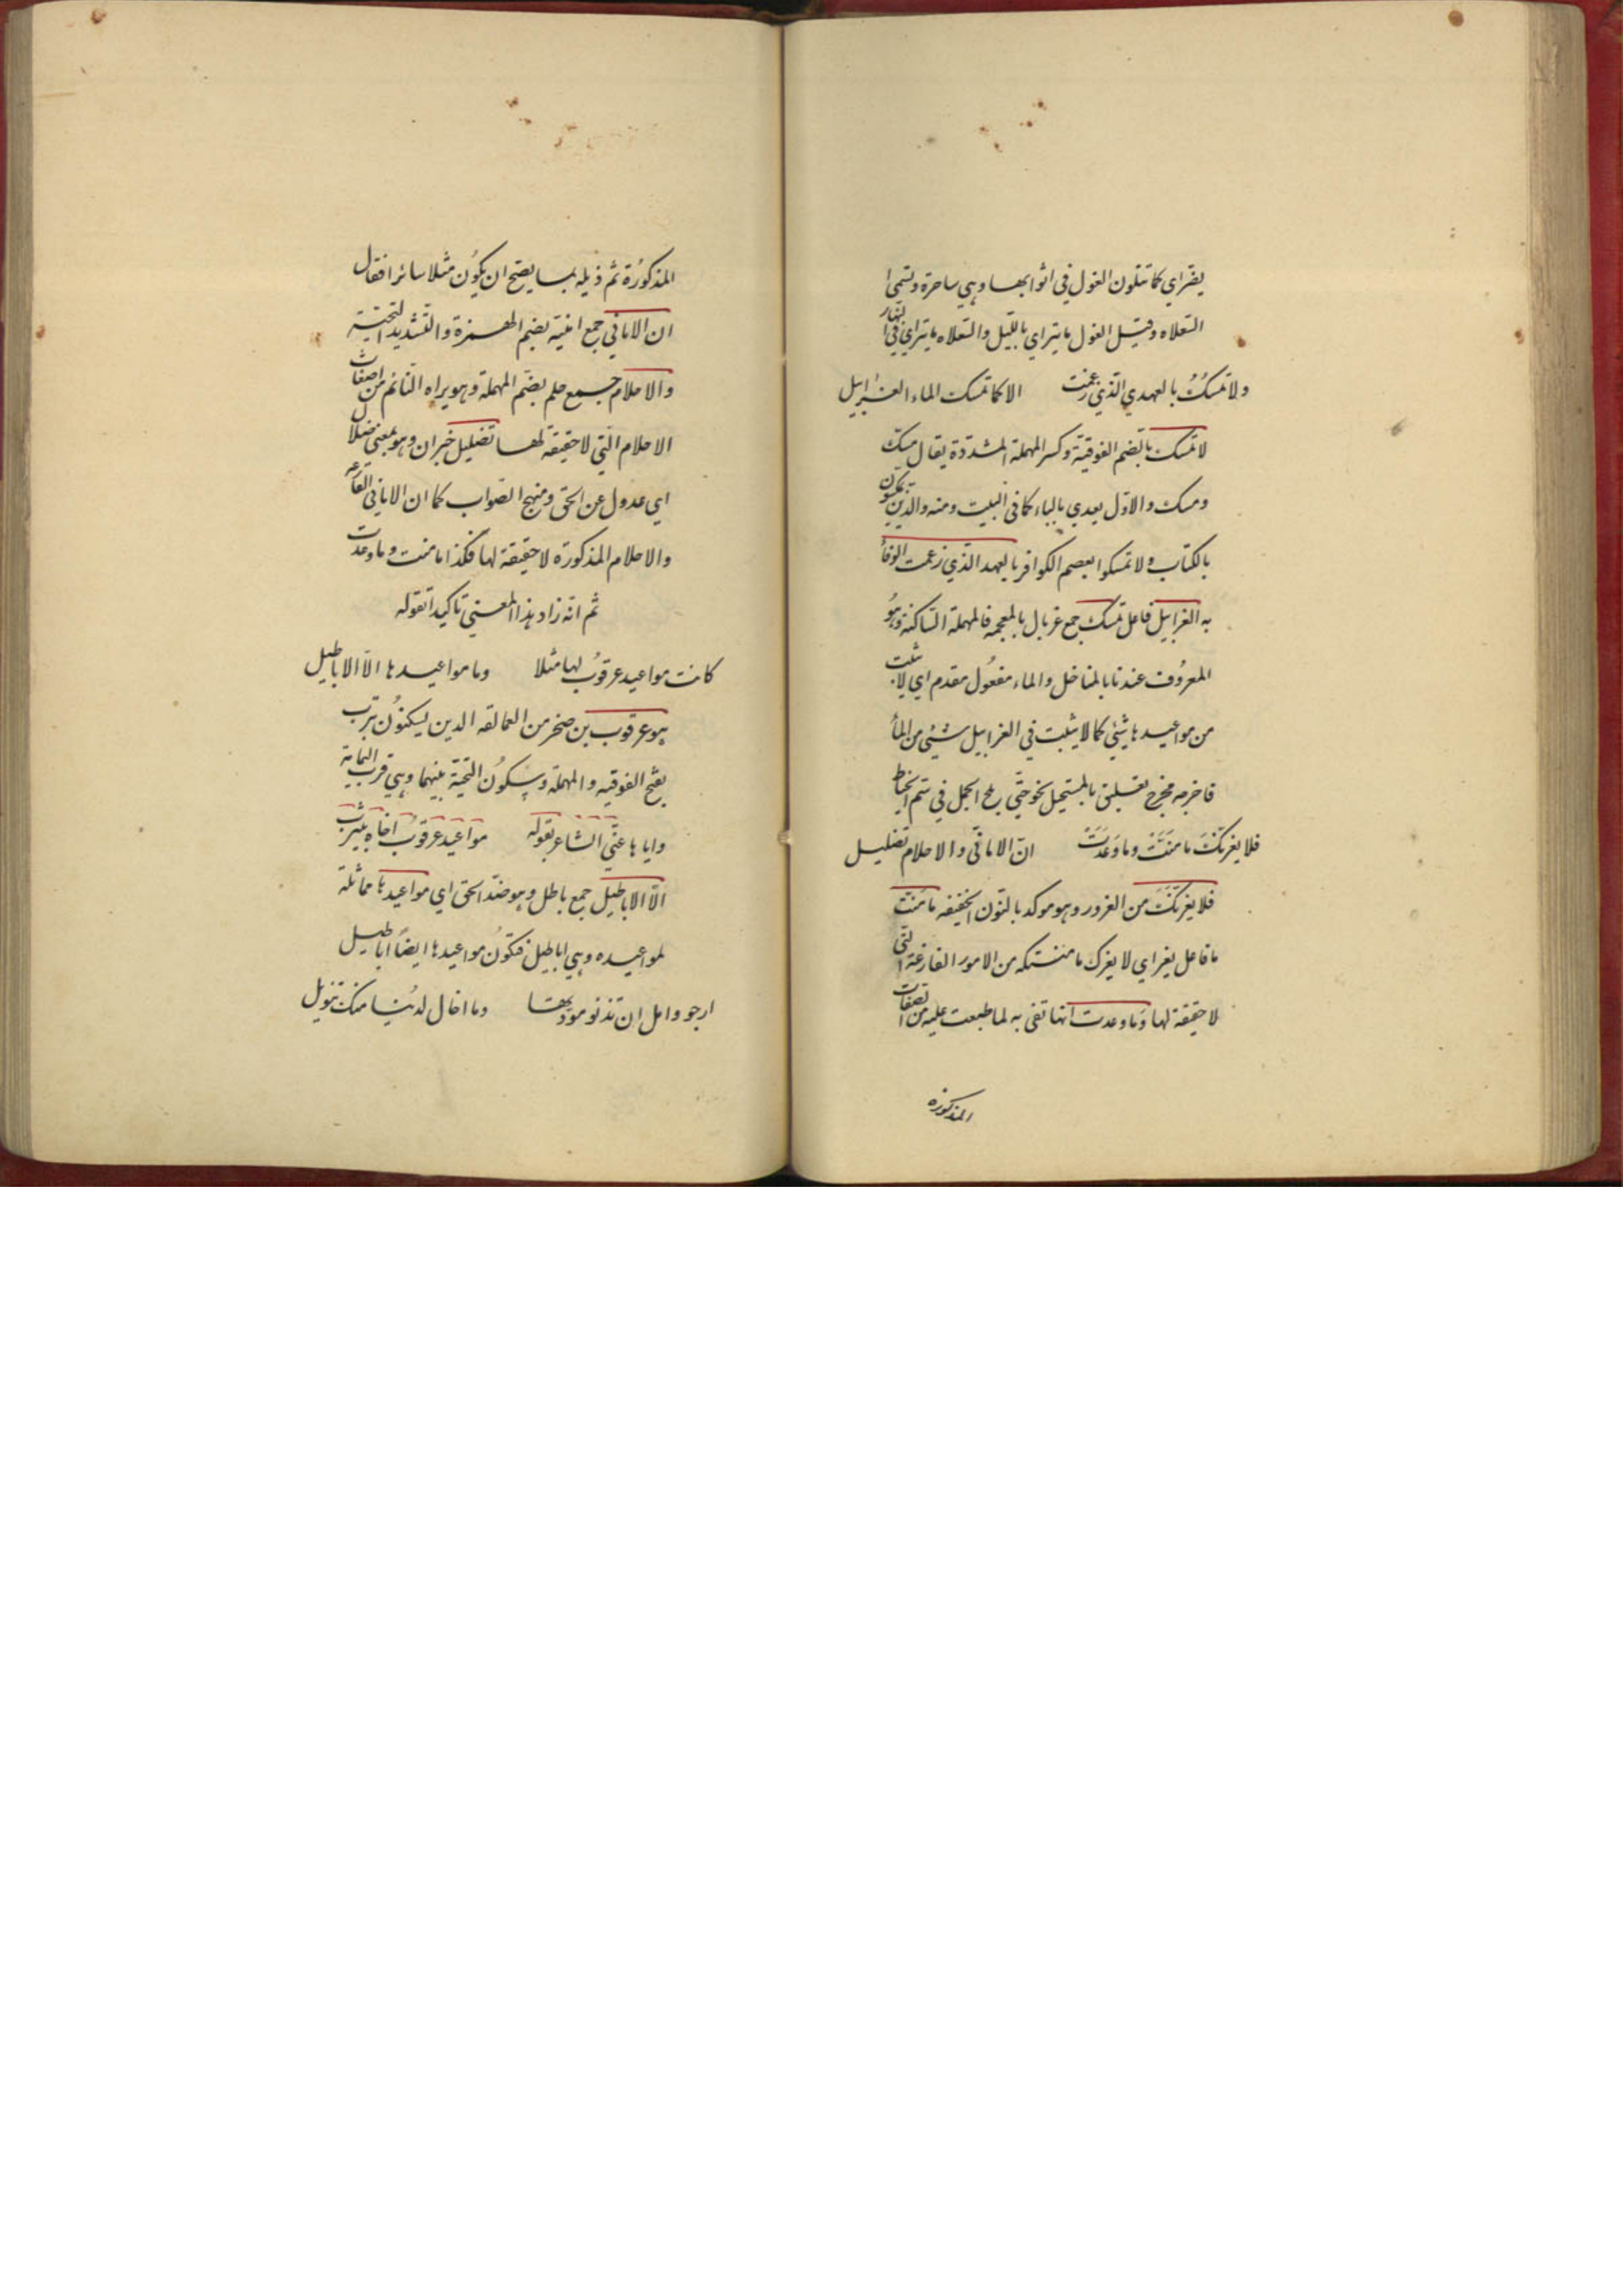 يفتراي كما تتلون الغول في اثوابها وهي ساحرة وتسمى
السعلاه وقيل الغول ما يتراي بالليل والسعلاه ما يتراي في النهار
ولا تمسكُ بالعهدي الذي زعمت الا كما تمسك الماء الغرابيل
لا تمسك بالضم الفوقية وكسر المهملة المشددة يقال مسك
ومسك والاول يعدي بالباء كما في البيت ومنه والذين يمسكون
بالكتاب ولا تمسكوا بعصم الكوافر بالعهد الذي زعمت الوفأ
به الغرابيل فاعل تمسك جمع غربال بالمعجمه فالمهملة الساكنة وهُو
المعروُف عندنا بالمناخل والماء مفعُول مقدم اي لا يثبت
من مواعيدها شيئ كما لا يثبت في الغرابيل شئ من المأ
فاخرجه مخرج تعليق بالمستحيل نحو حتى يلج الجمل في سم الخياط
فلا يغرنكَ ما منَّت وما وعَدَتْ انّ الاماني والاحلام تضليل
فلا يغرنكَ من الغرور وهو موكد بالنون الخفيفه ما منت
ما فاعل يغر اي لا يغرك ما منتكه من الامور الفارغة التي
لا حقيقة لها وَما وعدت انها تفى به لما طبعت عليه من الصفات
المذكورة
المذكوُرة ثم ذيله بما يصح ان يكوُن مثلا سائرا فقال
ان الاماني جمع امنية بضم الهمزة والتشديد التحتية
والاحلام جمع حلم بضم المهملة وهو يراه النائم من اضغاث
الاحلام التي لا حقيقة لها تضليل خبر ان وهو بمعنى ضلال
اي عدول عن الحق ومنهج الصواب كما ان الاماني الفارغه
والاحلام المذكورة لا حقيقة لها فكذا ما منت وما وعدت
ثم انه زاد هذا المعنى تاكيدا بقوله
كانت مواعيد عرقوُب لها مثلا وما مواعيدها الا الاباطيل
هو عرقوب بن صخر من العمالقه الدين يسكنوُن بترب
بفتح الفوقيه والمهملة وسكوُن التحية بينهما وهي قرب اليمامة
واياها عني الشاعر بقوله مواعيد عرقوُب اخاه بيترب
الا الاباطيل جمع باطل وهو ضد الحق اي مواعيدها مماثلة
لمواعيده وهي اباطيل فتكوُن مواعيدها ايضاً اباطيل
ارجو وامل ان تدنو مودتها وما اخال لديُنا منك تنويل